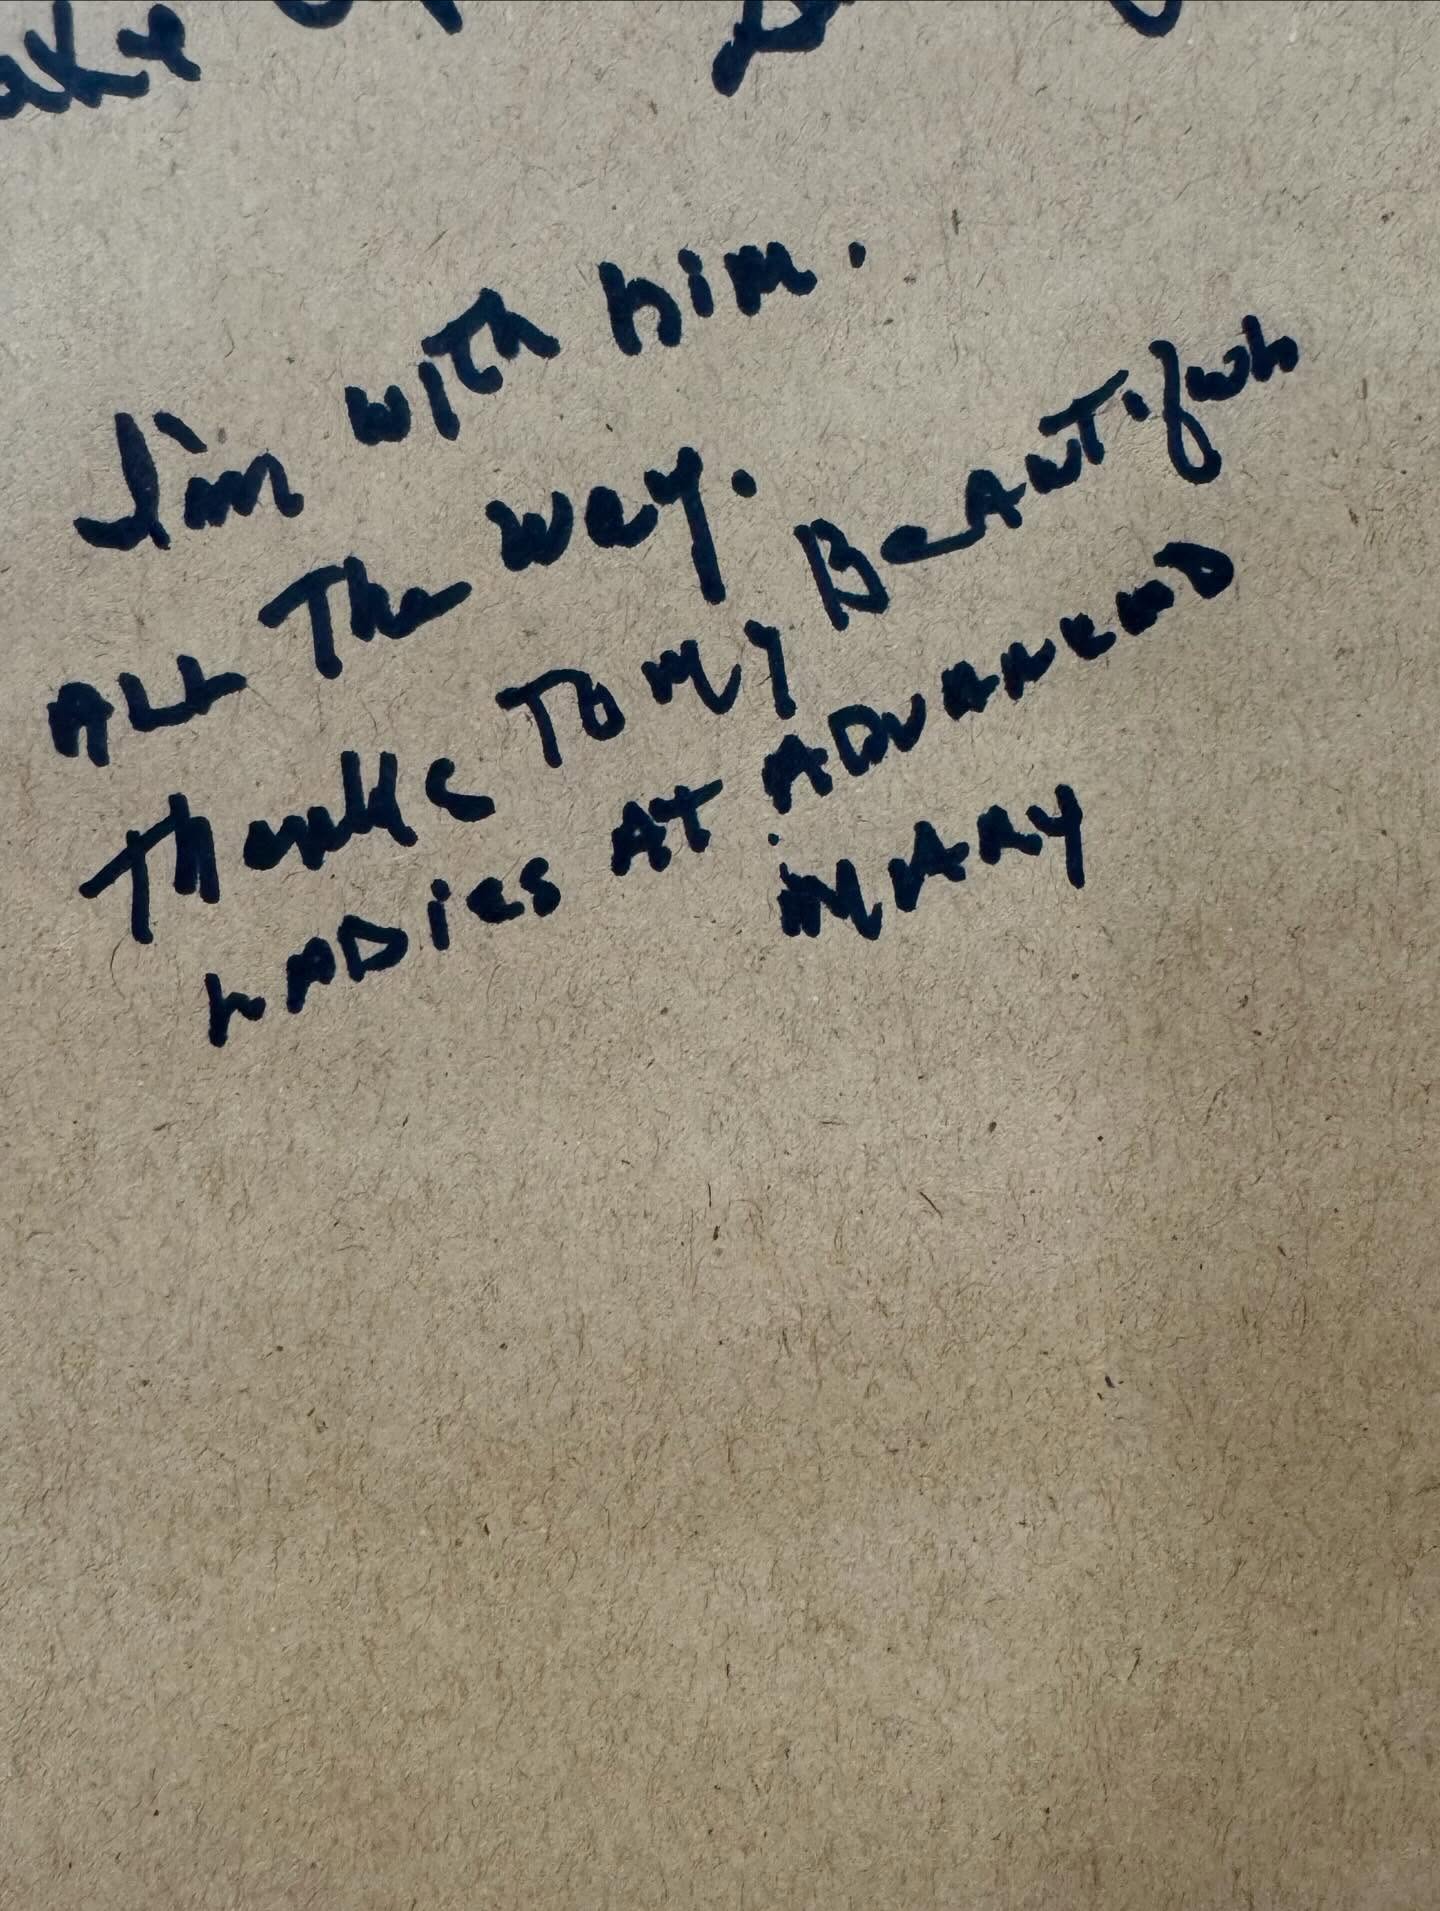 ake
I'm with him.
ALL The way.
Thanks To my BeAuTiful
LADies AT ADVANCED
MARY